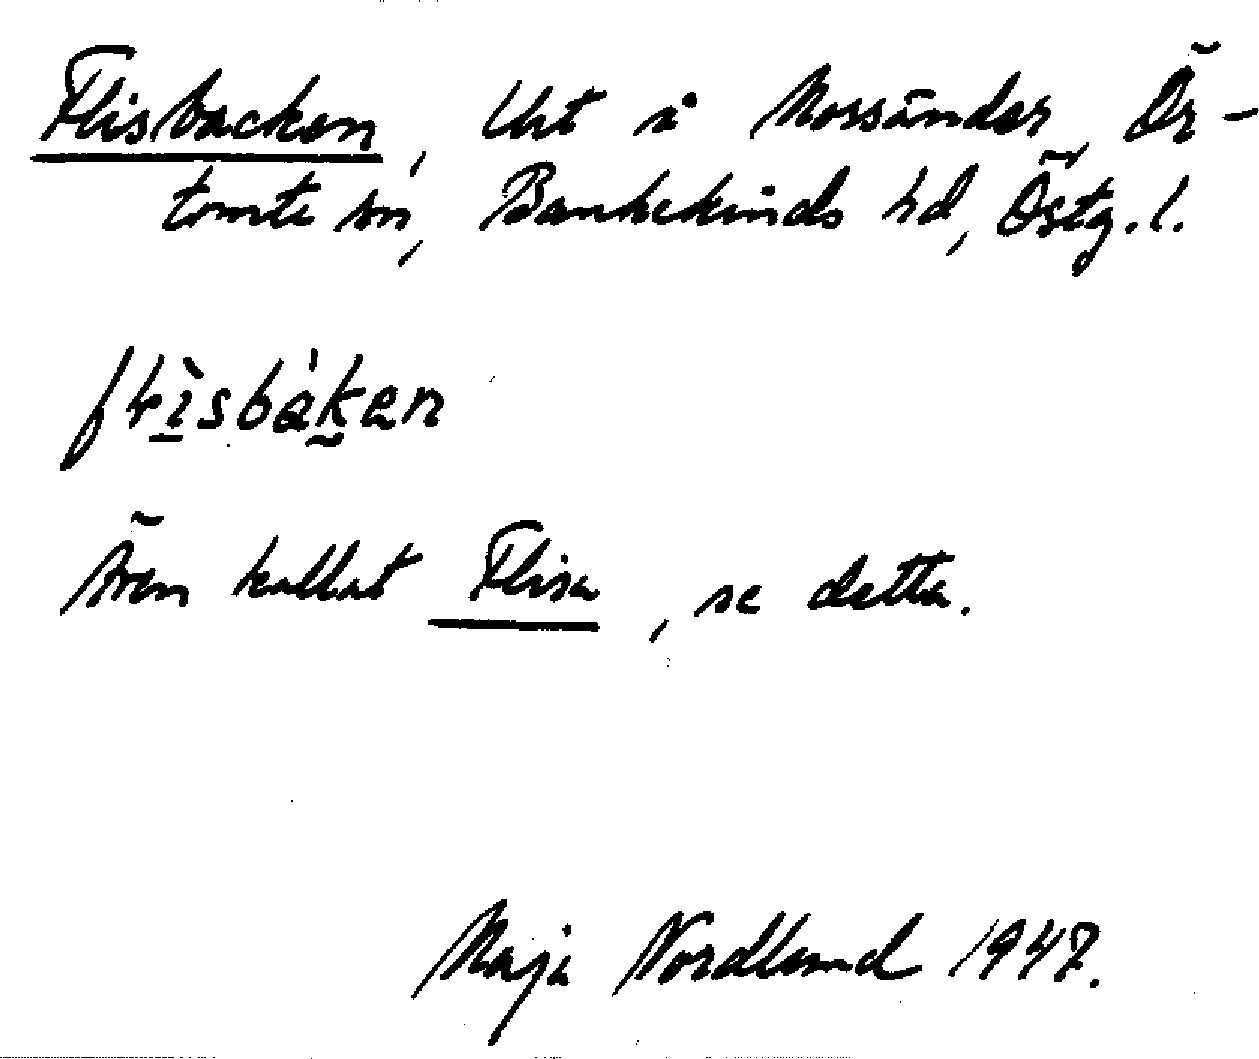 Flisbacken, Uht å Mossänder, Ör-
tomta sn, Bankekinds hd, Östg. l.
flìsbàken
Även kallat Flisa, se detta.
Maja Nordlund 1947.